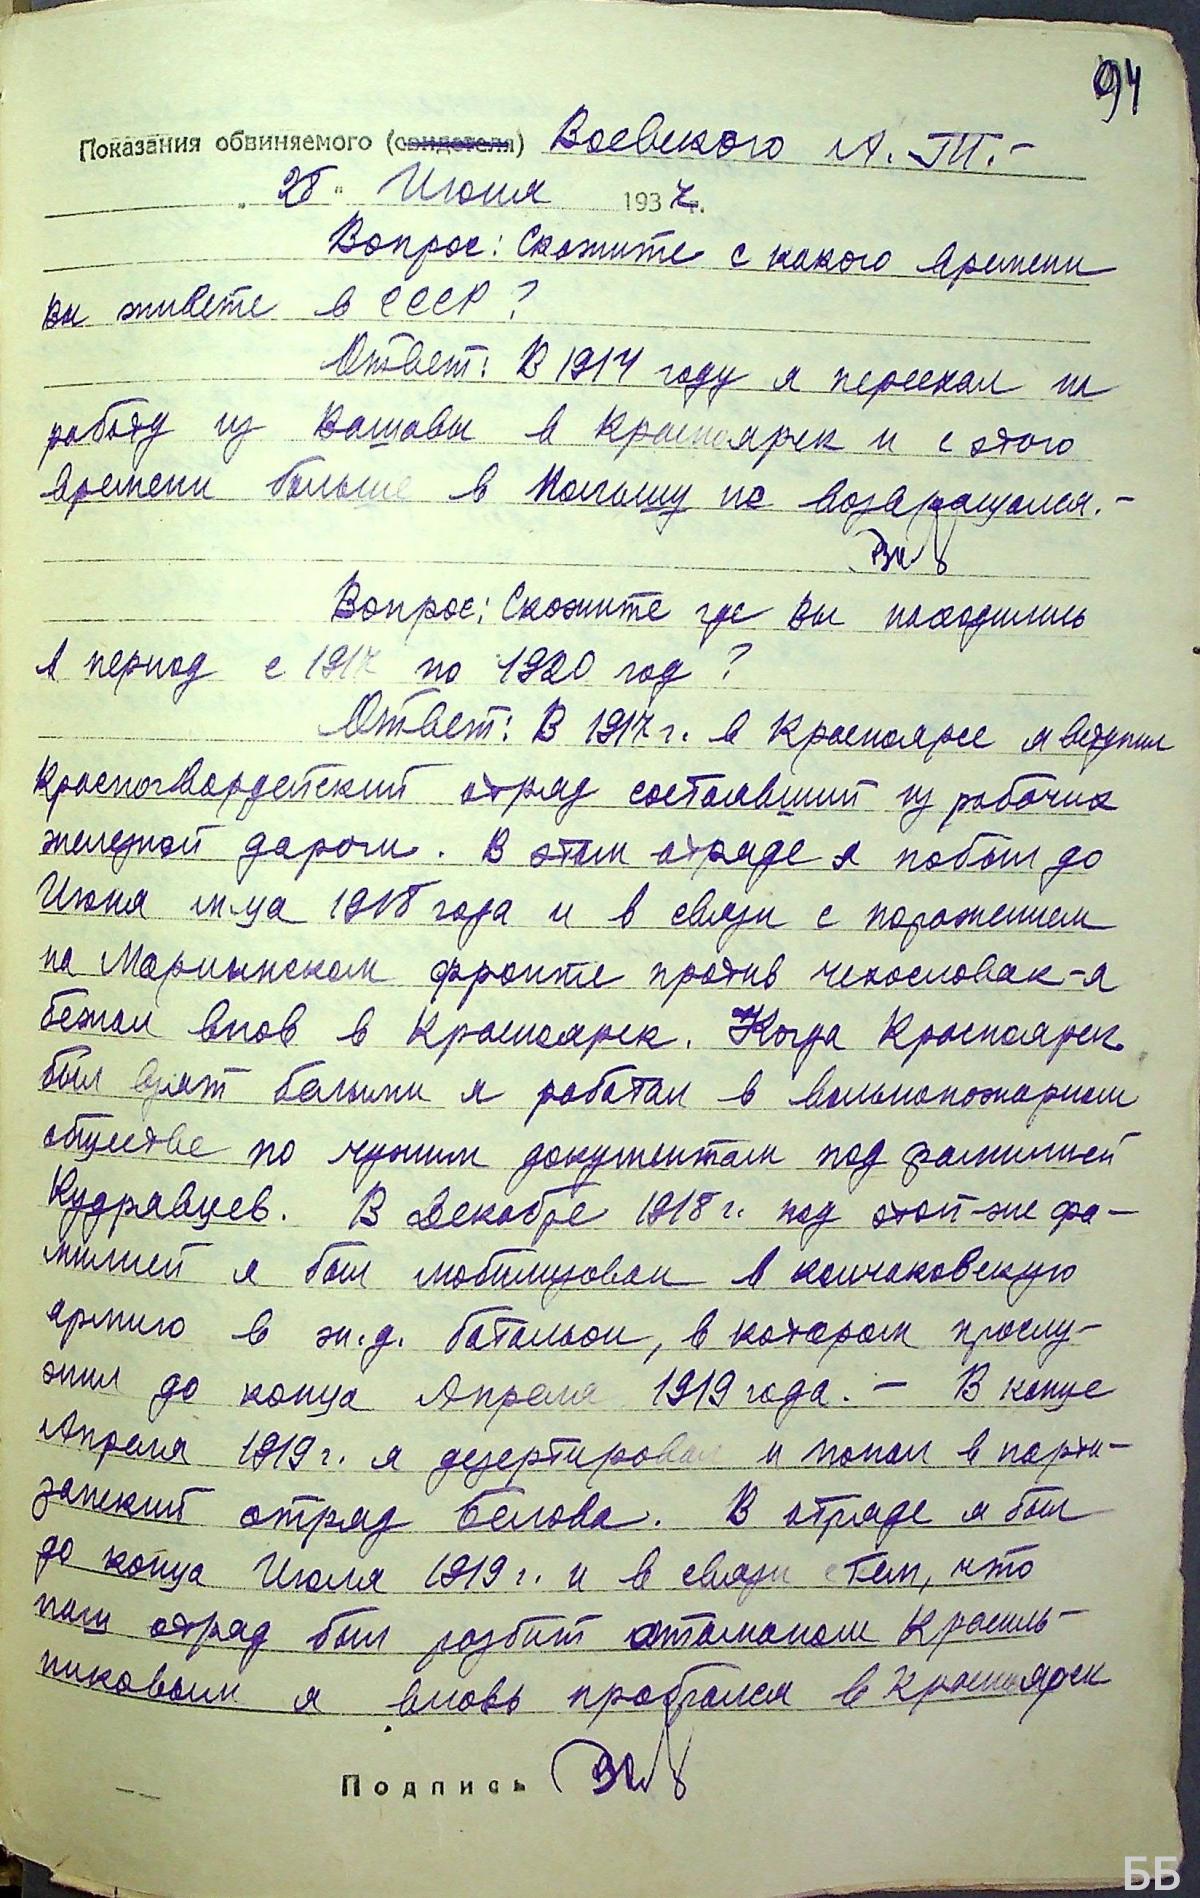 94
Показания обвиняемого (свидетеля) Воевского А. Т.-
„28" Июня 1937 г.
Вопрос: Скажите с какого времени
вы живете в СССР?
Ответ: В 1914 году я переехал на
работу из Вашавы в Красноярск и с этого
времени больше в Польшу не возвращался.-
Вопрос: Скажите где вы находились
в период с 1917 по 1920 год?
Ответ: В 1917 г. в Красноярске я вступил
Красногвардейский отряд состоявший из рабочих
железной дароги. В этом отряде я побыл до
Июня м-ца 1918 года и в связи с поражением
на Мариинском фронте против чехословак-я
бежал внов в Красноярск. Когда Красноярск
был взят белыми я работал в вольнопожарном
обществе по чужим документам под фамилией
Кудрявцев. В Декабре 1918 г. под этой-же фа-
милией я был мобилизован в колчаковскую
армию в ж.д. батальон, в котором прослу-
жил до конца Апреля 1919 года.- В конце
Апреля 1919 г. я дезертировал и попал в парти-
занский отряд Белова. В отряде я был
до конца Июля 1919 г. и в связи стем, что
наш отряд был разбит атаманом Красиль-
никовым я вновь пробрался в Красноярск
Подпись
ББ